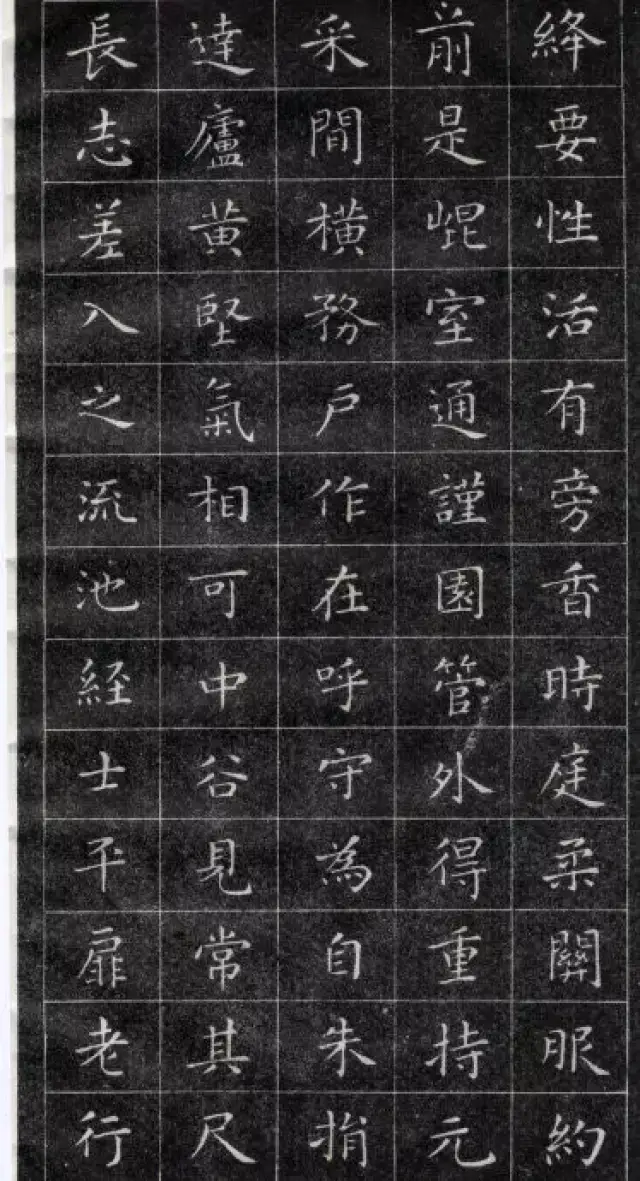 絳要性活有旁香時庭柔關服約
前是崐室通謹園管外得重持元
采間橫務戶作在呼守為自朱捐
達廬黃堅氣相可中谷見常其尺
長志差入之流池経士平扉老行